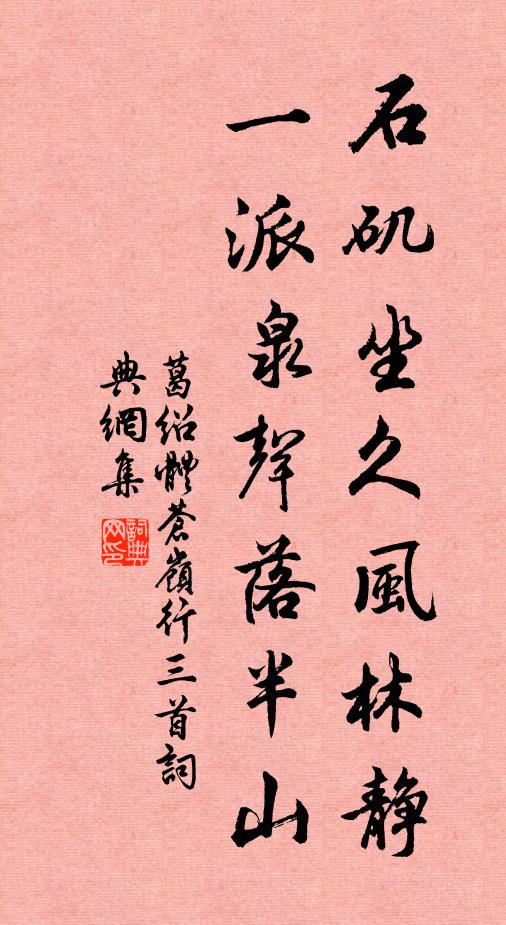 石矶坐久風林静
一派泉聲落半山
葛绍體蒼嶺行三首詞
典網集
詞典網印